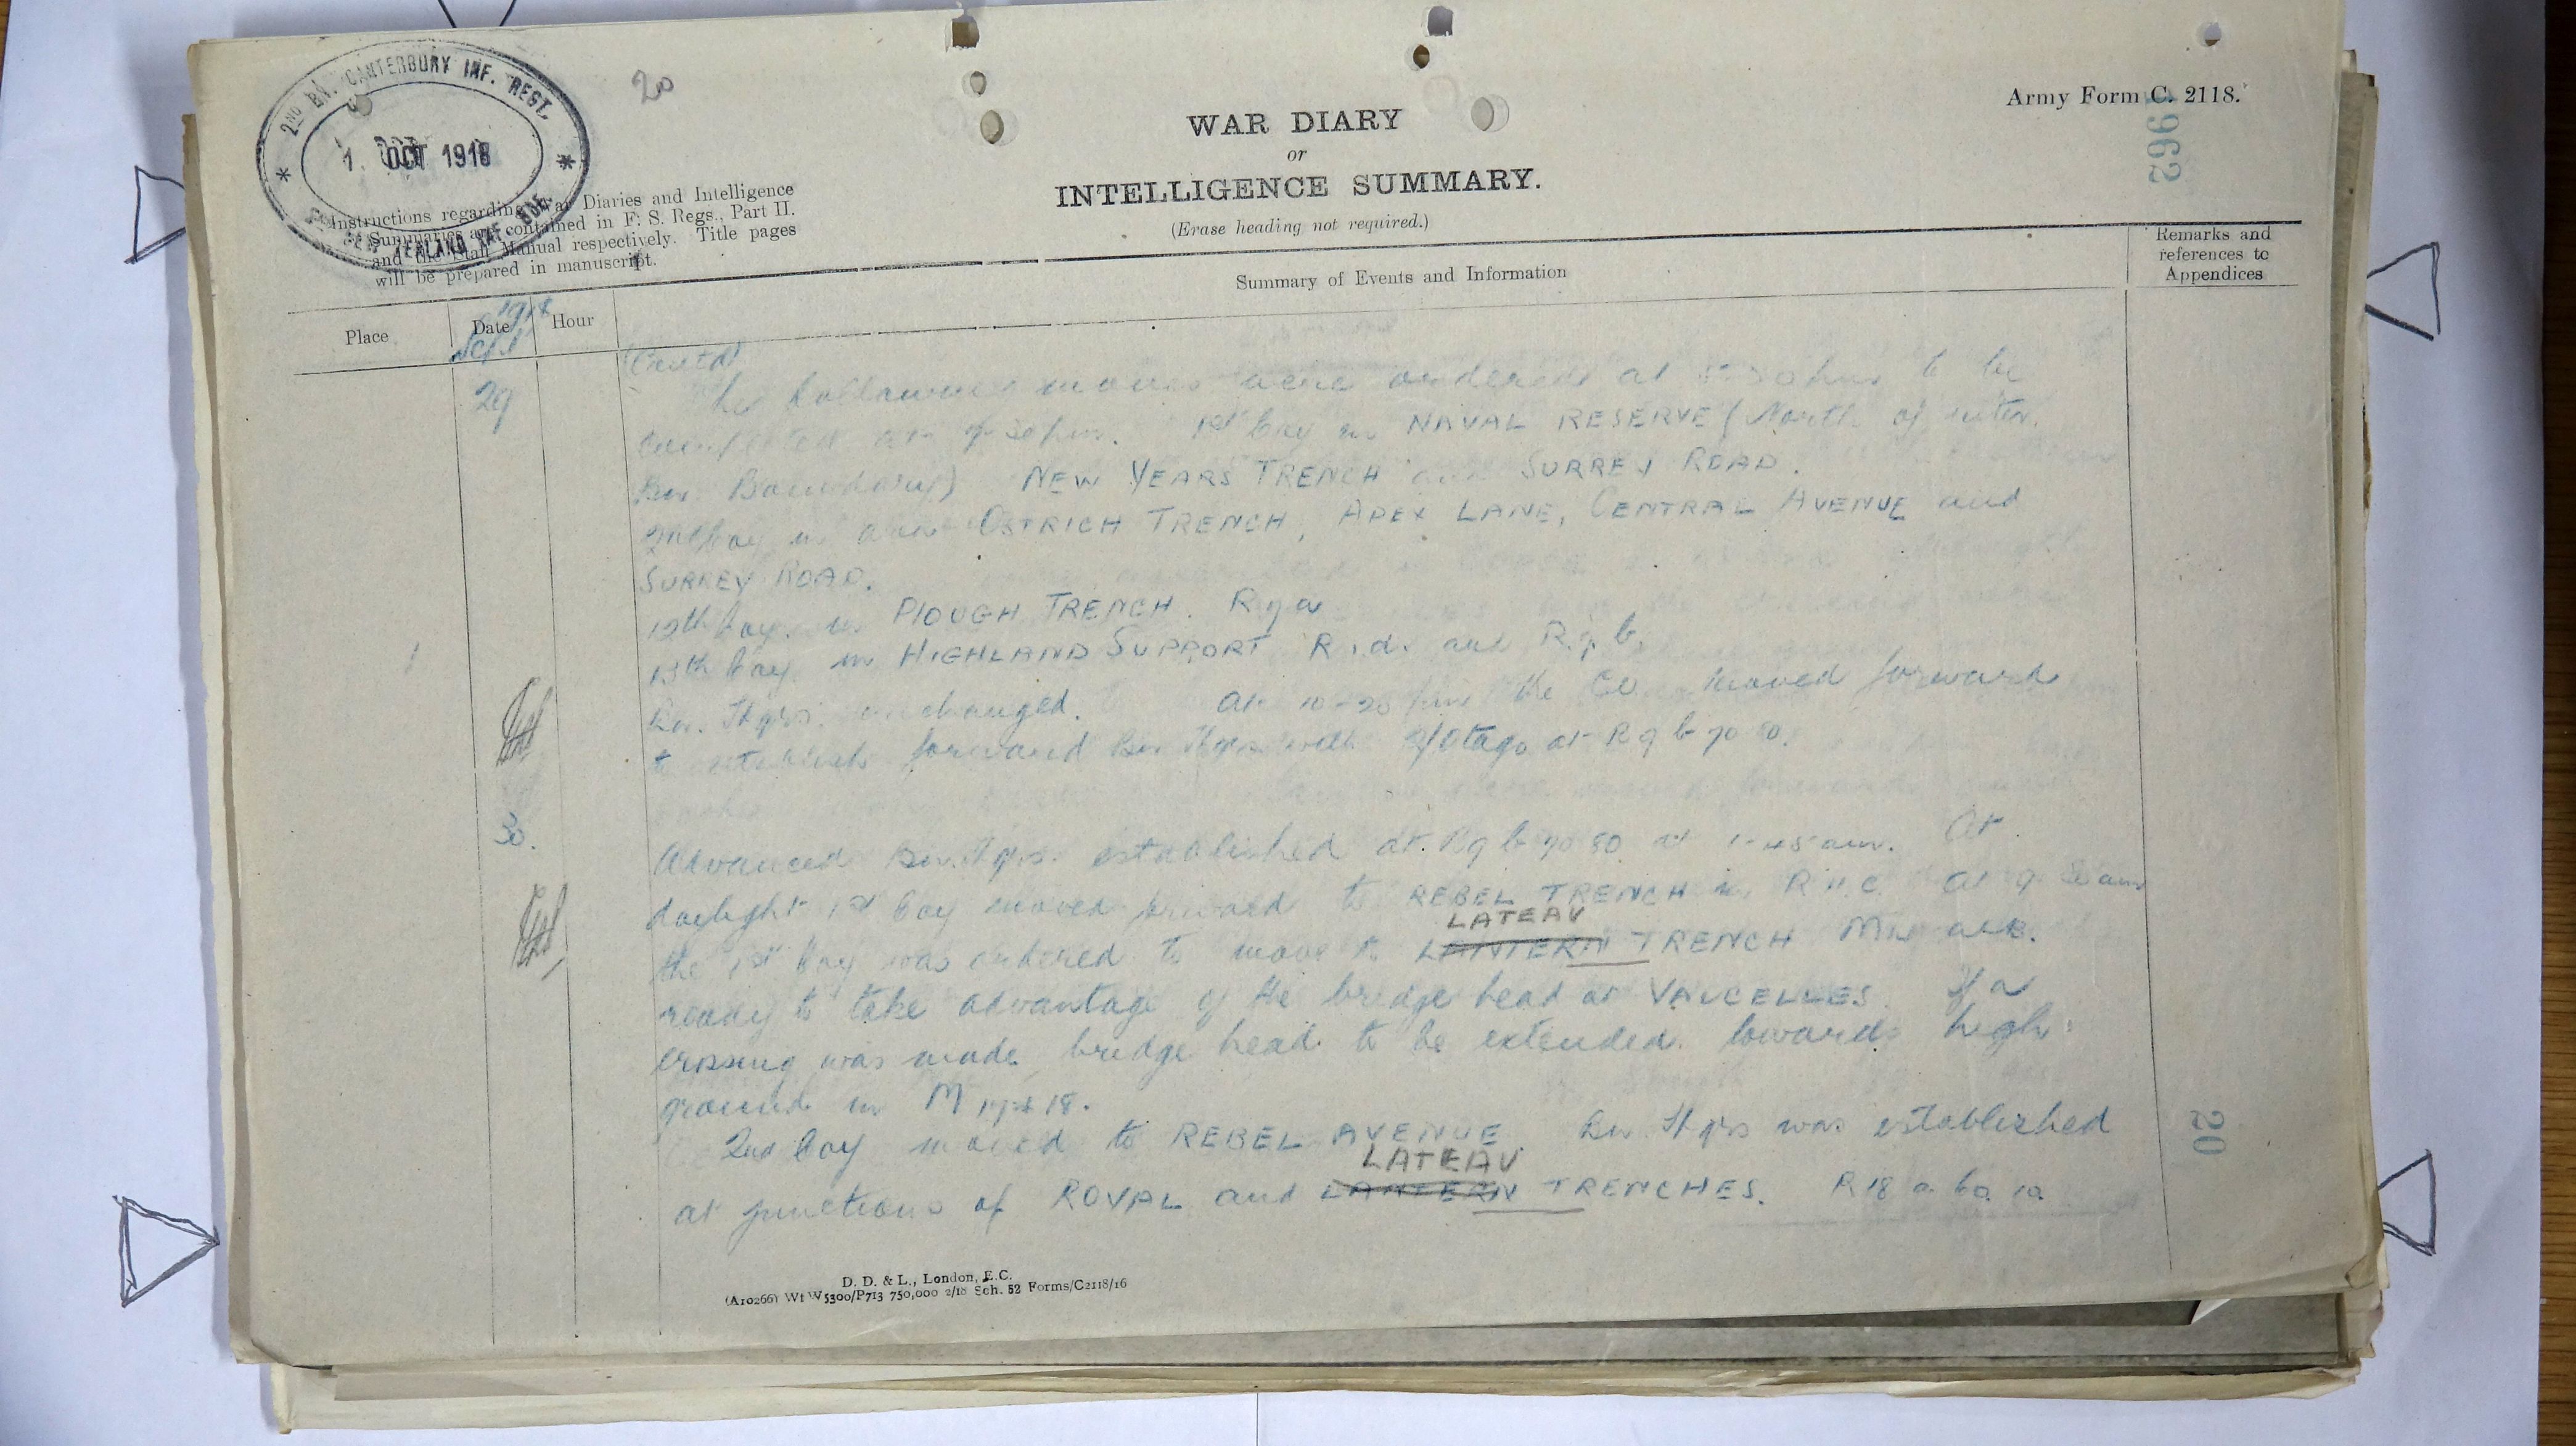 2ND BN. CANTERBURY INF. REGT.
1. OCT 1918
ZEALAND INF. BDE
20
Army Form C. 2118.
2962
WAR DIARY
or
INTELLIGENCE SUMMARY.
(Erase heading not required.)
Instructions regarding War Diaries and Intelligence
Summaries are contained in F. S. Regs., Part II.
and the Staff Manual respectively. Title pages
will be prepared in manuscript.
Summary of Events and Information
Remarks and
references to
Appendices
Place
Date
Hour
1918
Sept
29
(Contd)
The following moves were ordered at 5-30 pm to be
completed at 7-30 pm. 1st Coy in NAVAL RESERVE (North of inter.
Bn. Boundary) NEW YEARS TRENCH and SURREY ROAD.
2nd Coy in OSTRICH TRENCH, APEX LANE, CENTRAL AVENUE and
SURREY ROAD.
12th Coy. in PLOUGH TRENCH. R 9 a
13th Coy. in HIGHLAND SUPPORT R.d. and R.9 b.
Bn. Hqrs. unchanged. At 10-20 pm the CO moved forward
to establish forward Bn Hqrs with 2/Otago at R 9 b 70 80.
30.
Advanced Bn. Hqrs. established at R9 b 70 80 at 1-45 am. At
daylight 1st Coy moved forward to REBEL TRENCH in R 11.C. At 9 am
LATEAV
the 1st Coy was ordered to move to LANTERN TRENCH
ready to take advantage of the bridge head at VAUCELLES. If a
crossing was made, bridge head to be extended towards high
ground in M 17 & 18.
2nd Coy moved to REBEL AVENUE. Bn Hqrs was established
LATEAV
at junctions of ROVAL and LANTERN TRENCHES. R 18 a 60.10.
20
D. D. & L., London, E.C.
(A10266) Wt W5300/P713 750,000 2/18 Sch. 52 Forms/C2118/16